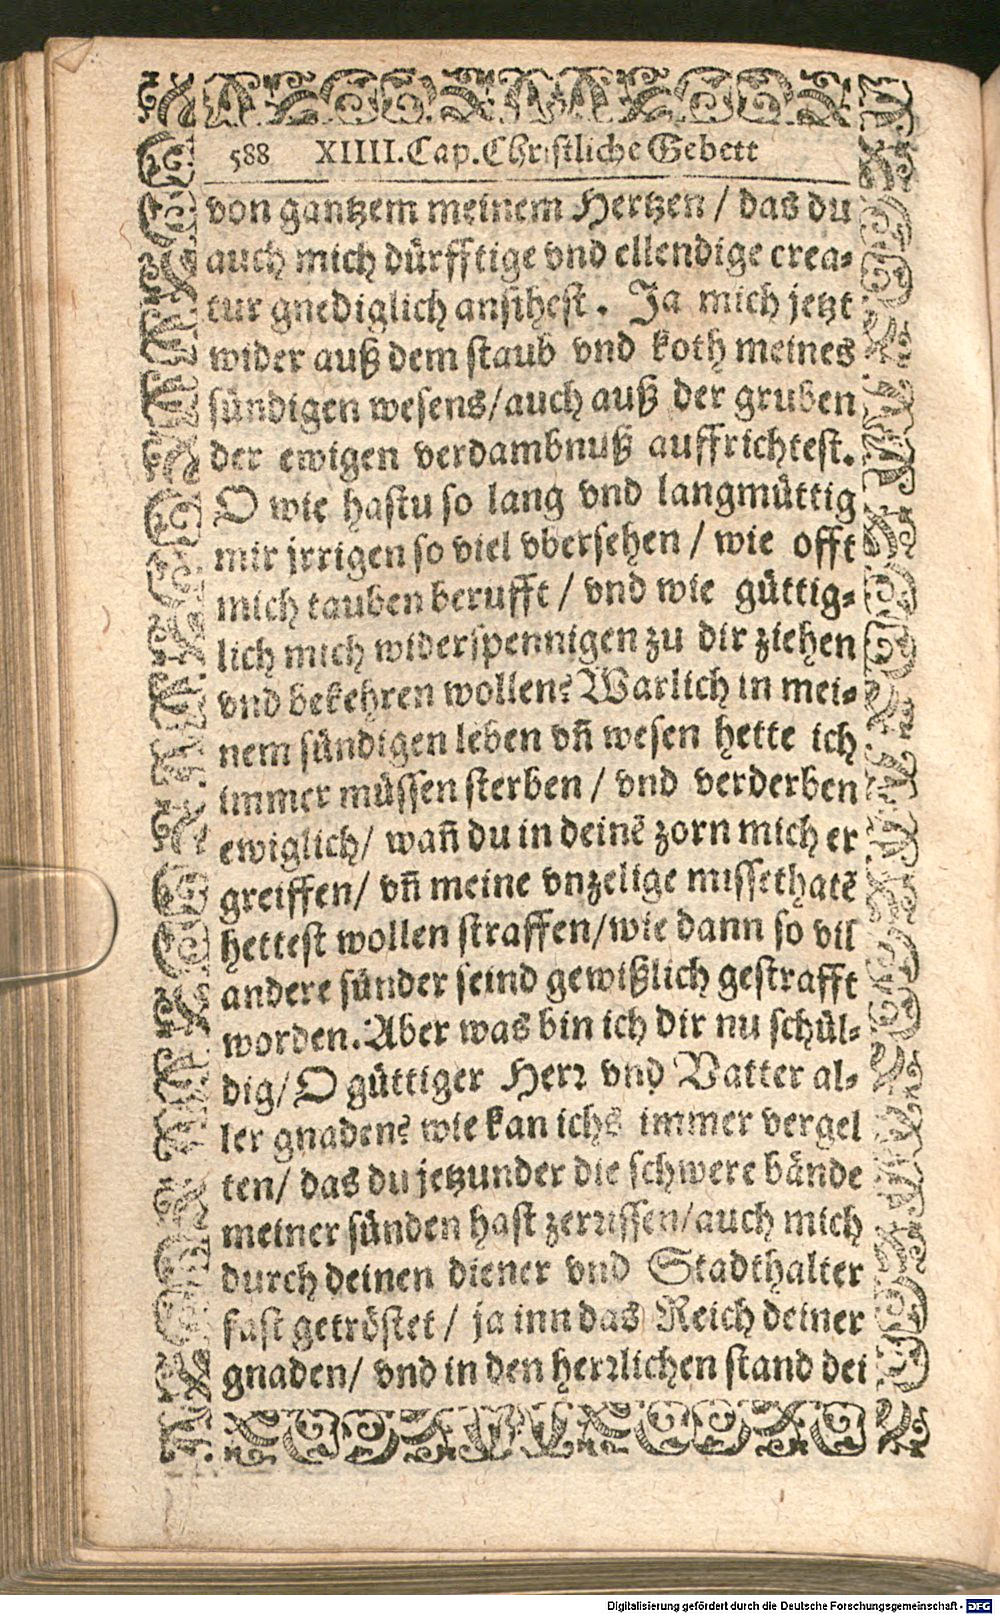 588 XIIII.Cap.Christliche Gebett
von gantzem meinem Hertzen / das du
auch mich dürfftige vnd ellendige crea-
tur gnediglich ansihest. Ja mich jetzt
wider auß dem staub vnd koth meines
sündigen wesens/auch auß der gruben
der ewigen verdambnuß auffrichtest.
O wie hastu so lang vnd langmüttig
mir jrrigen so viel vbersehen / wie offt
mich tauben berufft / vnd wie güttig-
lich mich widerspennigen zu dir ziehen
vnd bekehren wollen? Warlich in mei-
nem sündigen leben vñ wesen hette ich
immer müssen sterben / vnd verderben
ewiglich/ wañ du in deinẽ zorn mich er
greiffen/ vñ meine vnzelige missethatẽ
hettest wollen straffen/wie dann so vil
andere sünder seind gewißlich gestrafft
worden. Aber was bin ich dir nu schül-
dig/ O güttiger Herr vnd Vatter al-
ler gnaden? wie kan ichs immer vergel
ten/ das du jetzunder die schwere bände
meiner sünden hast zerrissen/auch mich
durch deinen diener vnd Stadthalter
fast getröstet / ja inn das Reich deiner
gnaden/ vnd in den herrlichen stand dei
Digitalisierung gefördert durch die Deutsche Forschungsgemeinschaft - DFG